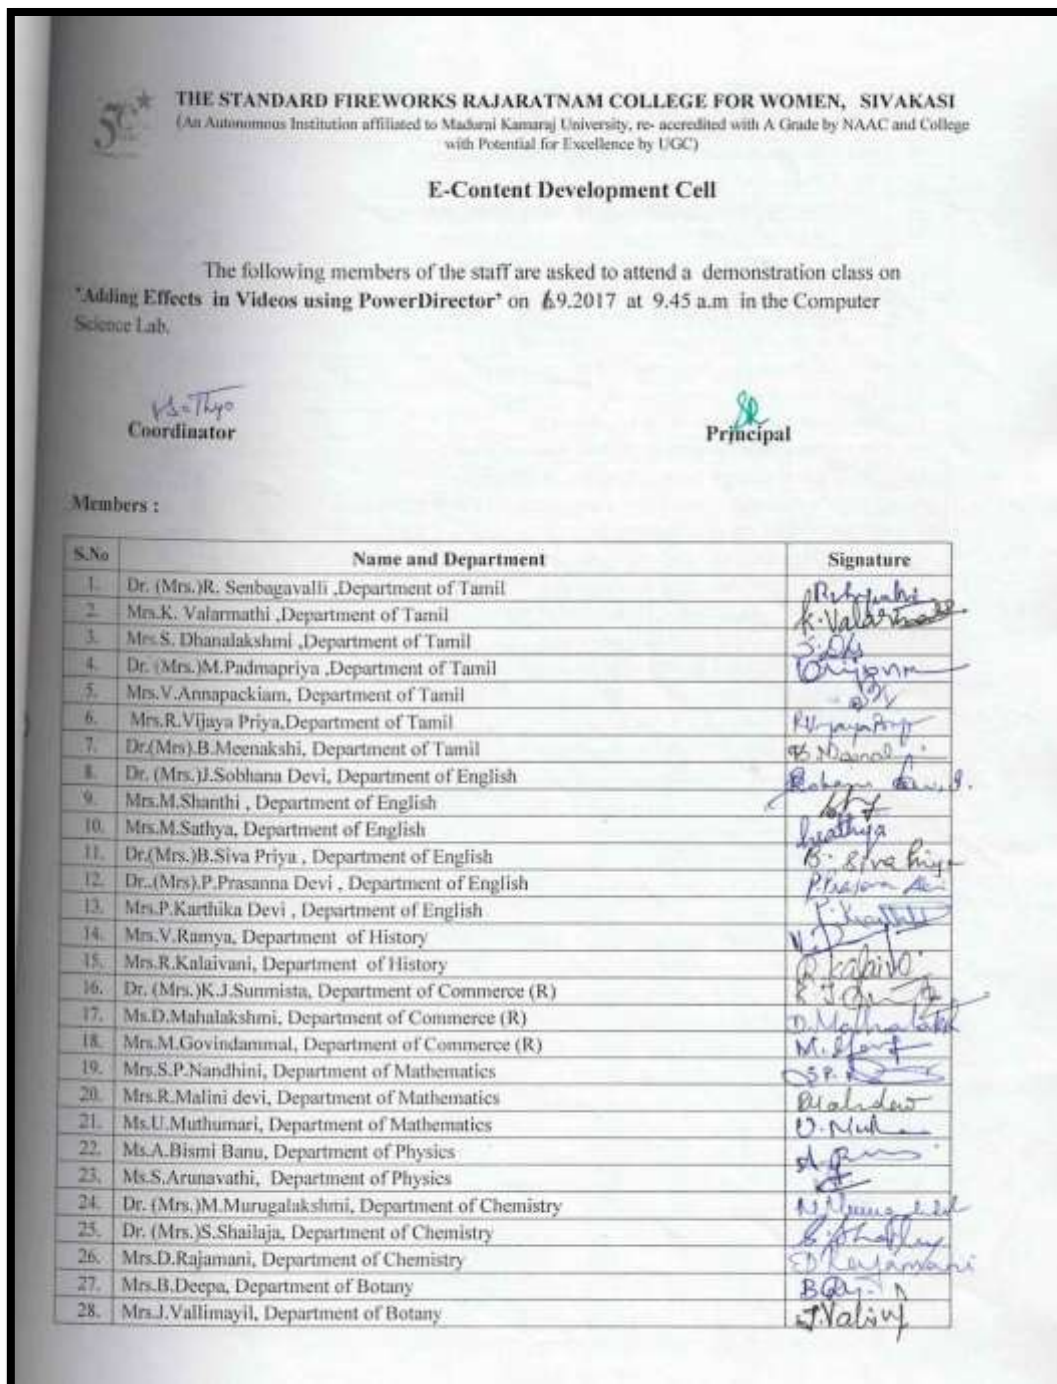 THE STANDARD FIREWORKS RAJARATNAM COLLEGE FOR WOMEN, SIVAKASI
(An Autonomous Institution affiliated to Madurai Kamaraj University, re- accredited with A Grade by NAAC and College
with Potential for Excellence by UGC)
E-Content Development Cell
The following members of the staff are asked to attend a demonstration class on
"Adding Effects in Videos using PowerDirector" on 6.9.2017 at 9.45 a.m in the Computer
Science Lab.
Coordinator Principal
Members :
S.No Name and Department Signature
1. Dr. (Mrs.)R. Senbagavalli ,Department of Tamil
2. Mrs.K. Valarmathi ,Department of Tamil K. Valarmathi
3. Mrs.S. Dhanalakshmi ,Department of Tamil
4. Dr. (Mrs.)M.Padmapriya ,Department of Tamil
5. Mrs.V.Annapackiam, Department of Tamil
6. Mrs.R.Vijaya Priya,Department of Tamil
7. Dr.(Mrs).B.Meenakshi, Department of Tamil
8. Dr. (Mrs.)J.Sobhana Devi, Department of English
9. Mrs.M.Shanthi , Department of English
10. Mrs.M.Sathya, Department of English
11. Dr.(Mrs.)B.Siva Priya , Department of English B. Siva Priya
12. Dr..(Mrs).P.Prasanna Devi , Department of English
13. Mrs.P.Karthika Devi , Department of English
14. Mrs.V.Ramya, Department of History
15. Mrs.R.Kalaivani, Department of History
16. Dr. (Mrs.)K.J.Sunmista, Department of Commerce (R)
17. Ms.D.Mahalakshmi, Department of Commerce (R)
18. Mrs.M.Govindammal, Department of Commerce (R)
19. Mrs.S.P.Nandhini, Department of Mathematics
20. Mrs.R.Malini devi, Department of Mathematics
21. Ms.U.Muthumari, Department of Mathematics
22. Ms.A.Bismi Banu, Department of Physics
23. Ms.S.Arunavathi, Department of Physics
24. Dr. (Mrs.)M.Murugalakshmi, Department of Chemistry
25. Dr. (Mrs.)S.Shailaja, Department of Chemistry
26. Mrs.D.Rajamani, Department of Chemistry
27. Mrs.B.Deepa, Department of Botany
28. Mrs.J.Vallimayil, Department of Botany